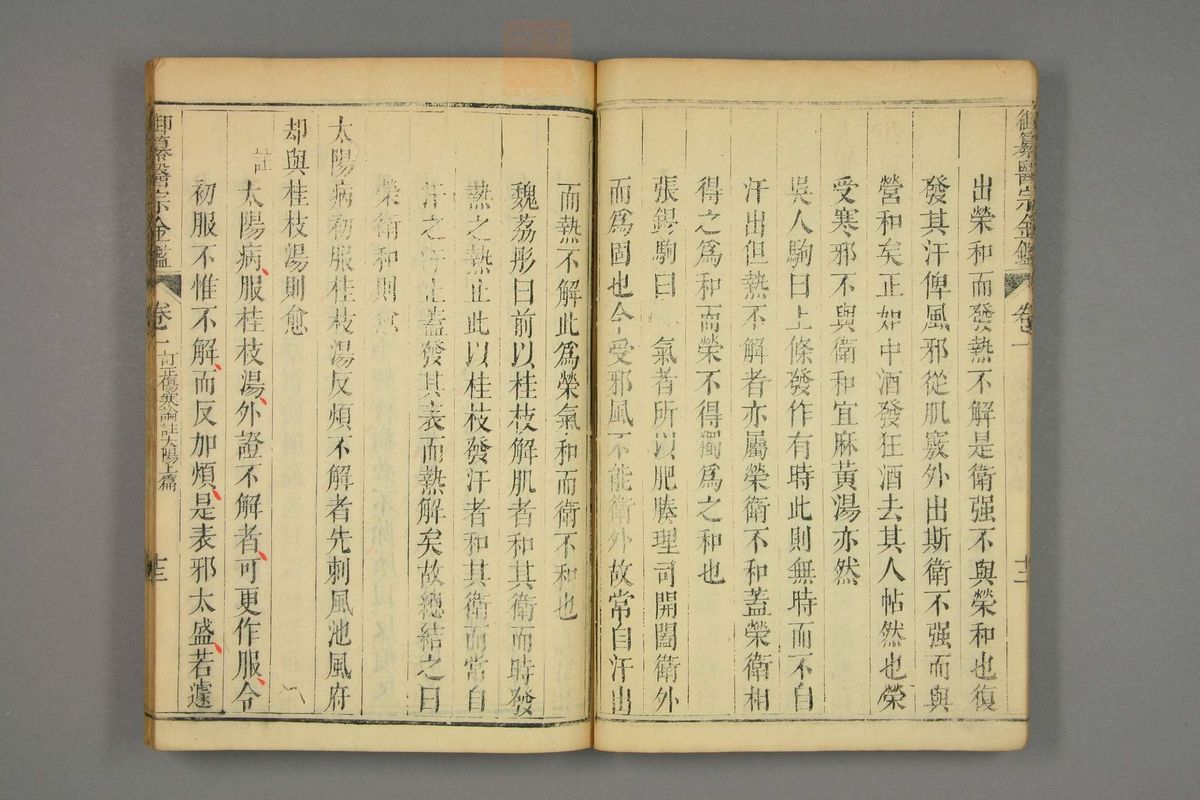 御纂醫宗金鑑 卷一
出榮和而發熱不解是衛强不與榮和也復
發其汗俾風邪從肌竅外出斯衛不强而與
營和矣正如中酒發狂酒去其人帖然也榮
受寒邪不與衛和宜麻黃湯亦然
吳人駒曰上條發作有時此則無時而不自
汗出但熱不解者亦屬榮衛不和蓋榮衛相
得之爲和而榮不得獨爲之和也
張錫駒曰衛氣者所以肥腠理司開闔衛外
而爲固也今受邪風不能衛外故常自汗出
而熱不解此爲榮氣和而衛不和也
魏荔彤曰前以桂枝解肌者和其衛而時發
熱之熱止此以桂枝發汗者和其衛而常自
汗之汗止蓋發其表而熱解矣故總結之曰
榮衛和則愈
太陽病初服桂枝湯反煩不解者先刺風池風府
却與桂枝湯則愈
註太陽病服桂枝湯外證不解者可更作服今
初服不惟不解而反加煩是表邪太盛若遽
御纂醫宗金鑑 卷一 訂正傷寒論註太陽上篇 十三